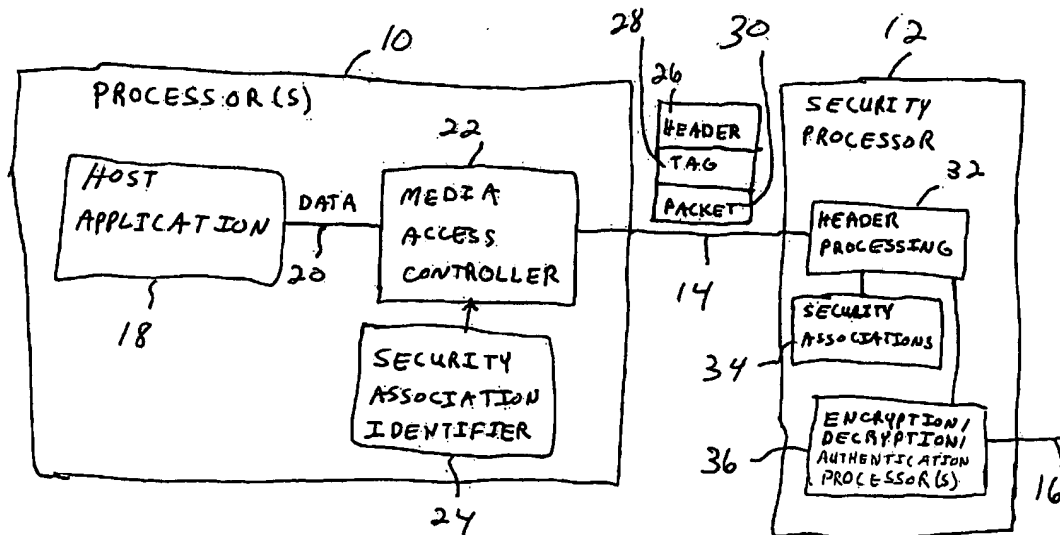 10
PROCESSOR(S)
HOST
APPLICATION
18
DATA
20
22
MEDIA
ACCESS
CONTROLLER
SECURITY
ASSOCIATION
IDENTIFIER
24
28
26
30
HEADER
TAG
PACKET
14
12
SECURITY
PROCESSOR
32
HEADER
PROCESSING
SECURITY
ASSOCIATIONS
34
ENCRYPTION/
DECRYPTION/
AUTHENTICATION
PROCESSOR(S)
36
16